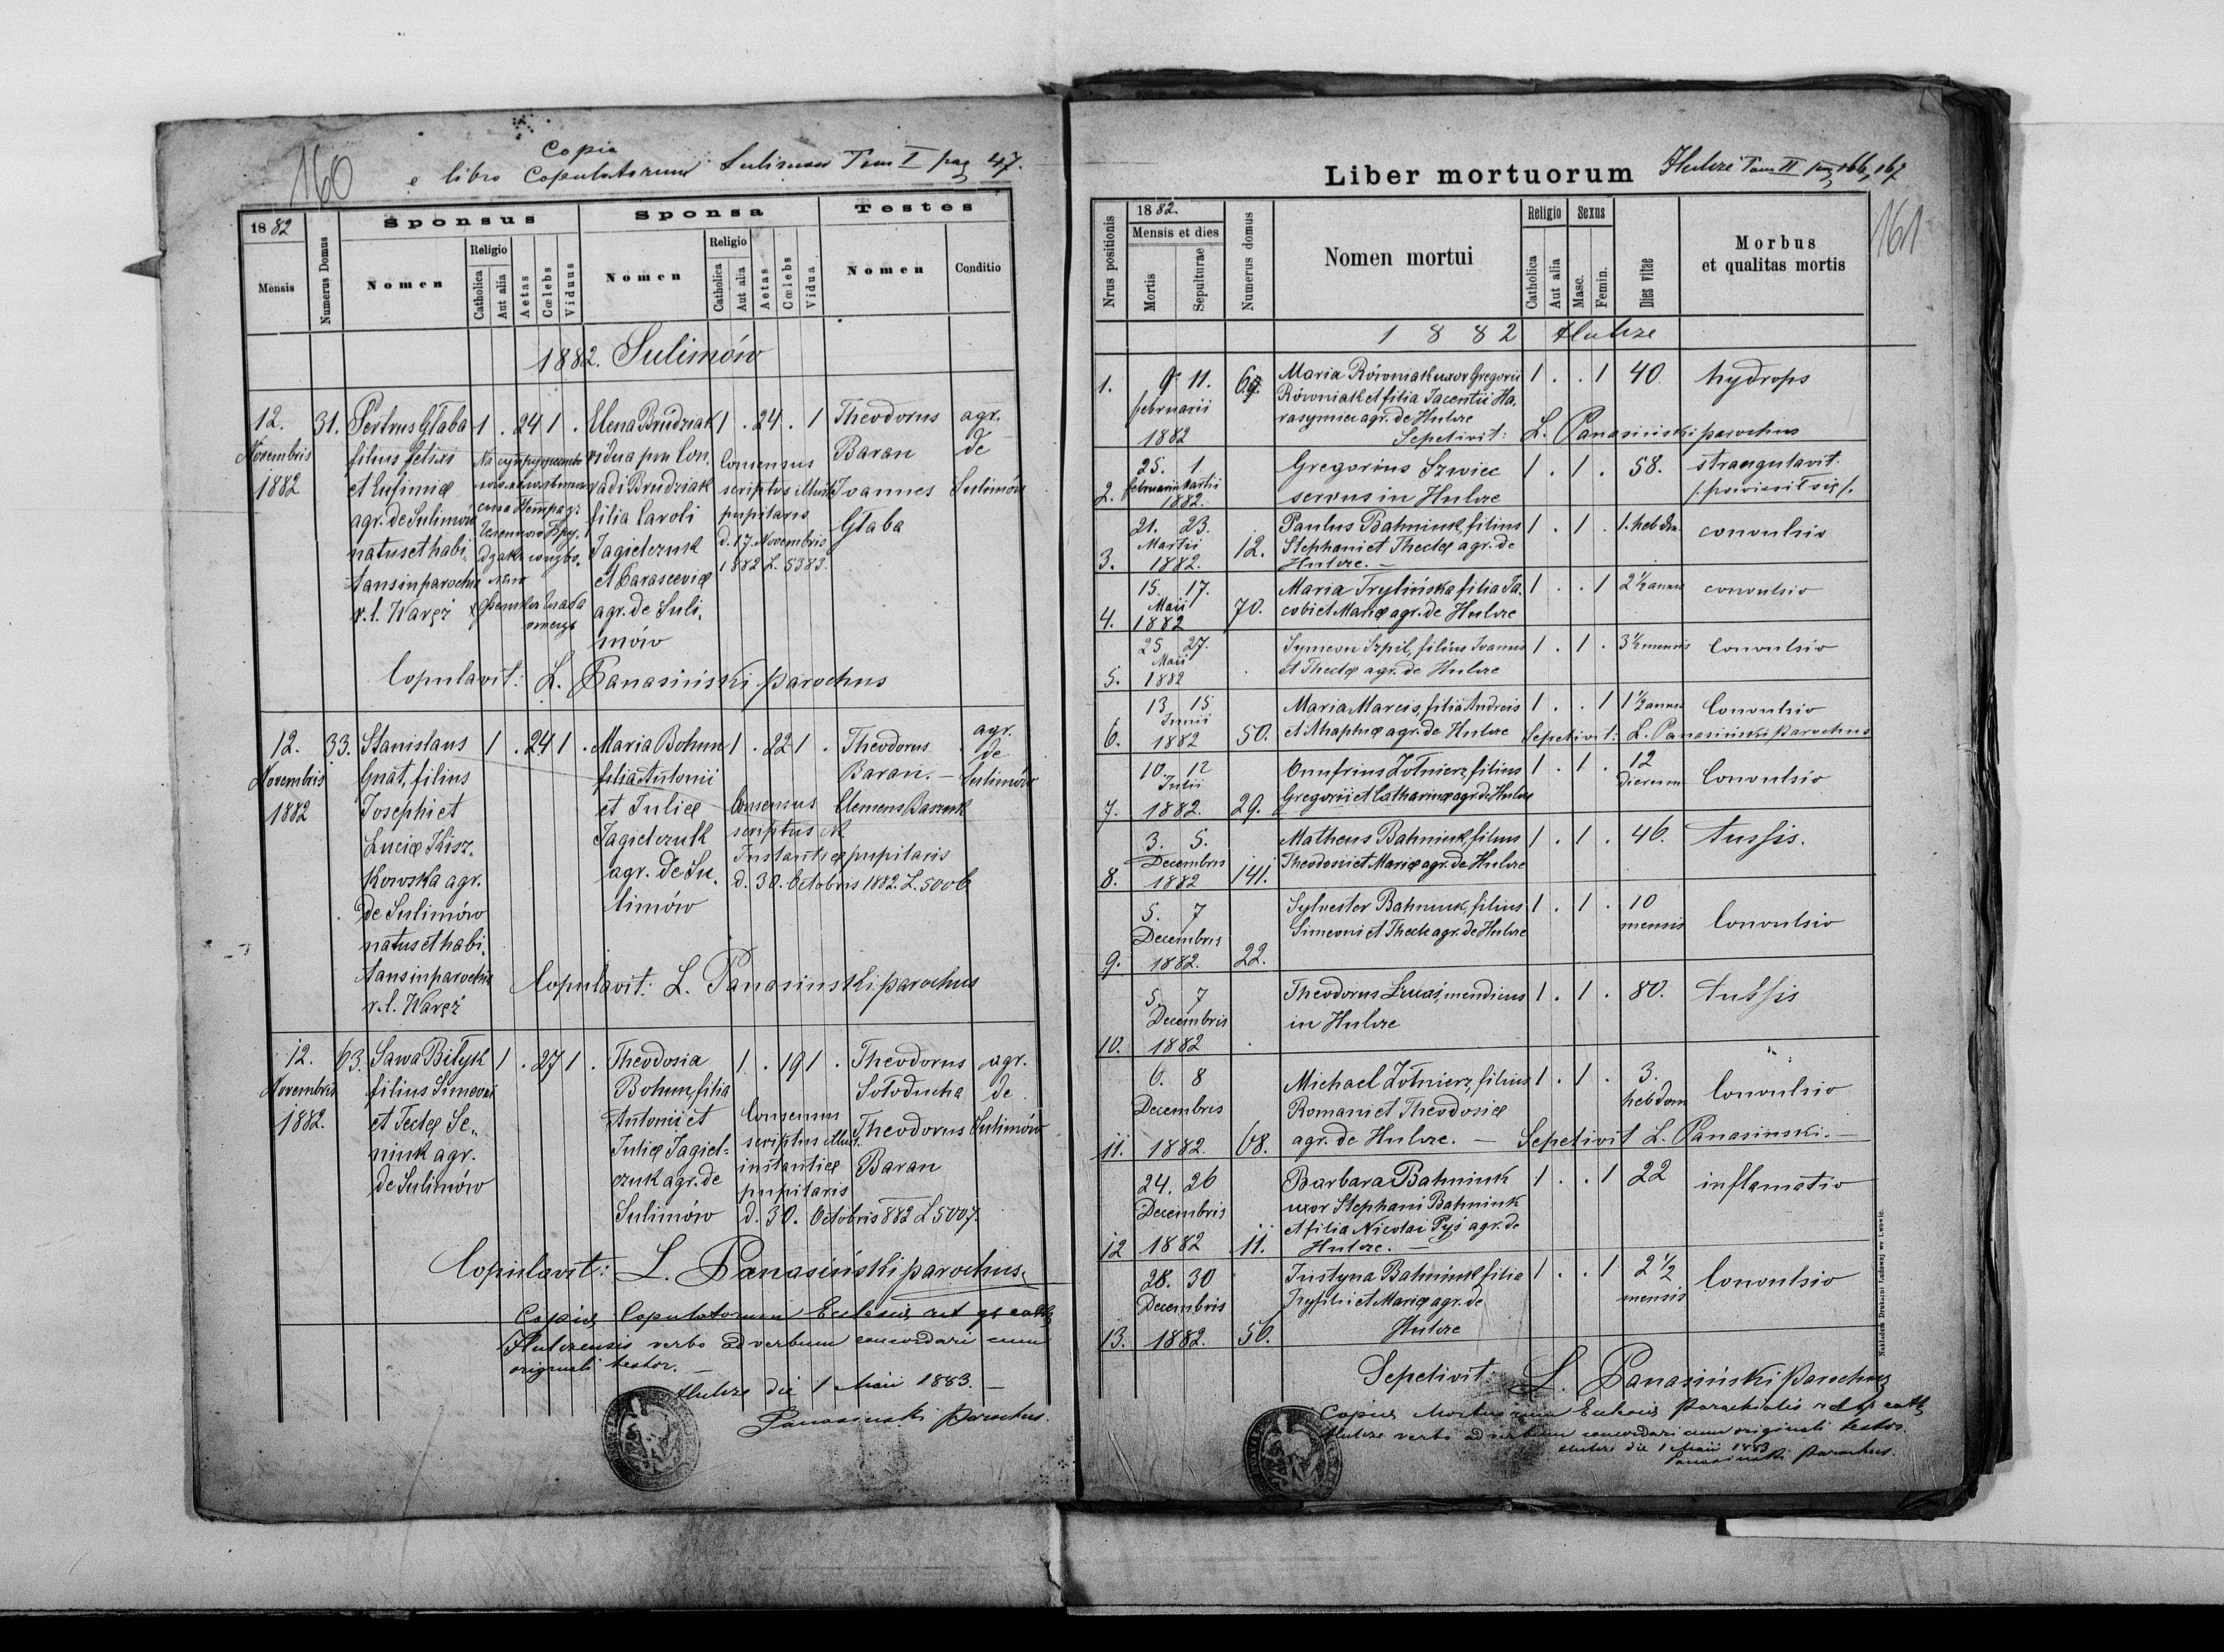 160
Copia
e libro Copulatorum Sulimow Tom I pag 47.
1882
Mensis
Numerus Domus
Sponsus
Nomen
Religio
Catholica
Aut alia
Aetas
Cœlebs
Viduus
Sponsa
Nomen
Religio
Catholica
Aut alia
Aetas
Cœlebs
Vidua
Testes
Nomen
Conditio
1882. Sulimów
12. 31. Petrus Głaba 1 . 24 1 . Elena Brudziak 1 . 24 . 1 Theodorus agr.
Novembris
1882
filius felixi
et Eufimiæ
agr. de Sulimów
natus et habi.
tans in parochia
r. l. Waręż
vidua p[...] Con.
radi Brudziak
filia Caroli
Jagielczuk
et Parasceviæ
agr. de Suli,
mów
Consensus
scriptus illust.
pupilaris
d. 17. Novembris
1882 L. 5383.
Baran
Joannes
Głaba
de
Sulimów
Copulavit: L. Panasiński parochus
12. 33. Stanislaus 1 . 24 1 . Maria Bohun 1 . 22 1 . Theodorus agr.
Novembris
1882
Gnat, filius
Josephi et
Luciæ Kisz.
kowska agr.
de Sulimów
natus et habi.
tans in parochia
r. l. Waręż
filia Antonii
et Juliæ
Jagielczuk
agr. de Su.
limów
Consensus
scriptus
Instantiæ pupilaris
d. 30. Octobris 1882. L. 5006
Baran. —
Clemens Baszuk
de
Sulimów
Copulavit: L. Panasinski parochus
12. 63. Sawa Biłyk 1 . 27 1 . Theodosia 1 . 19 1 . Theodorus agr.
Novembris
1882.
filius Simeoni
et Teclæ Se„
niuk agr.
de Sulimów
Bohun, filia
Antonii et
Juliæ Jagiel=
czuk agr. de
Sulimów
Consensus
scriptus illust.
instantiæ
pupilaris
d. 30. Octobris 882 L 5007.
Sołoducha
Theodorus
Baran
de
Sulimów
Copulavit: L. Panasiński parochus.
Copiæ Copulatorum Eclesiæ rit gr cath
Hulczensis verbo ad verbum concordari cum
originali testor. —
Hulcze die 1 Maii 1883. —
Panasinski parochus.
Liber mortuorum Hulcze Tom II pag 166, 167
161
Nrus positionis
1882.
Mensis et dies
Mortis
Sepulturae
Numerus domus
Nomen mortui
Religio
Catholica
Aut alia
Sexus
Masc.
Femin.
Dies vitae
Morbus
et qualitas mortis
1882 Hulcze
1. 9. 11. 69. Maria Równiak uxor Gregorii 1 . . 1 40. hydrops
februarii
1882
Równiak et filia Jacentii Ha,
rasymiec agr. de Hulcze
Sepelivit: L. Panasiński parochus
2. 25. 1. Gregorius Szwiec 1 . 1 . 58. strangulavit.
februarii Martii
1882.
servus in Hulcze
/. powiesił się /.
3. 21. 23. 12. Paulus Bahniuk, filius 1 . 1 . 1. hebdm. convulsio
Martii
1882.
Stephani et Theclæ agr. de
Hulcze. —
4. 15. 17. 70. Maria Trylińska filia Ja. 1 . . 1 2 ½ annis convulsio
Maii
1882
cobi et Mariæ agr. de Hulcze
5. 25. 27. . Symeon Szpil, filius Joannis 1 . 1 . 3 ½ mensis Convulsio
Maii
1882
et Theclæ agr. de Hulcze
6. 13 15 50. Maria Marcis, filia Andreis 1 . . 1 1 ½ annis Convulsio
Junii
1882
et Ahaphiæ agr. de Hulcze
Sepelivit: L. Panasiński parochus
7. 10. 12 29. Onufrius Żołnierz, filius 1 . 1 . 12 dierum Convulsio
Julii
1882.
Gregorii et Catharinæ agr. de Hulcze
8. 3. 5. 141. Matheus Bahniuk, filius 1 . 1 . 46. tussis.
Decembris
1882
Theodosii et Mariæ agr. de Hulcze
9. 5. 7 22. Sylvester Bahniuk, filius 1 . 1 . 10 mensis Convulsio
Decembris
1882.
Simeoni et Thecle agr. de Hulcze
10. 5. 7 . Theodorus Lucaś, mendicus 1 . 1 . 80. tussis
Decembris
1882
in Hulcze
11. 6. 8 68. Michael Żołnierz, filius 1 . 1 . 3. hebdom Convulsio
Decembris
1882.
Romani et Theodosiæ
agr. de Hulcze. —
Sepelivit L. Panasinski. —
12 24. 26 11. Barbara Bahniuk 1 . . 1 22 inflamatio
Decembris
1882
uxor Stephani Bahniuk
et filia Nicolai Pyś agr. de
Hulcze. —
13. 28. 30 56. Justyna Bahniuk filia 1 . . 1 2 ½ mensis Convulsio
Decembris
1882.
Tryfilii et Mariæ agr. de
Hulcze
Sepelivit: L. Panasiński parochus
Copiæ Mortuorum Eclesiæ Parochialis rit gr cath
Hulcze verbo ad verbum concordari cum originali testor.
Hulcze die 1 Maii 1883
Panasinski parochus.
Nakładem Drukarni Ludowej we Lwowie.